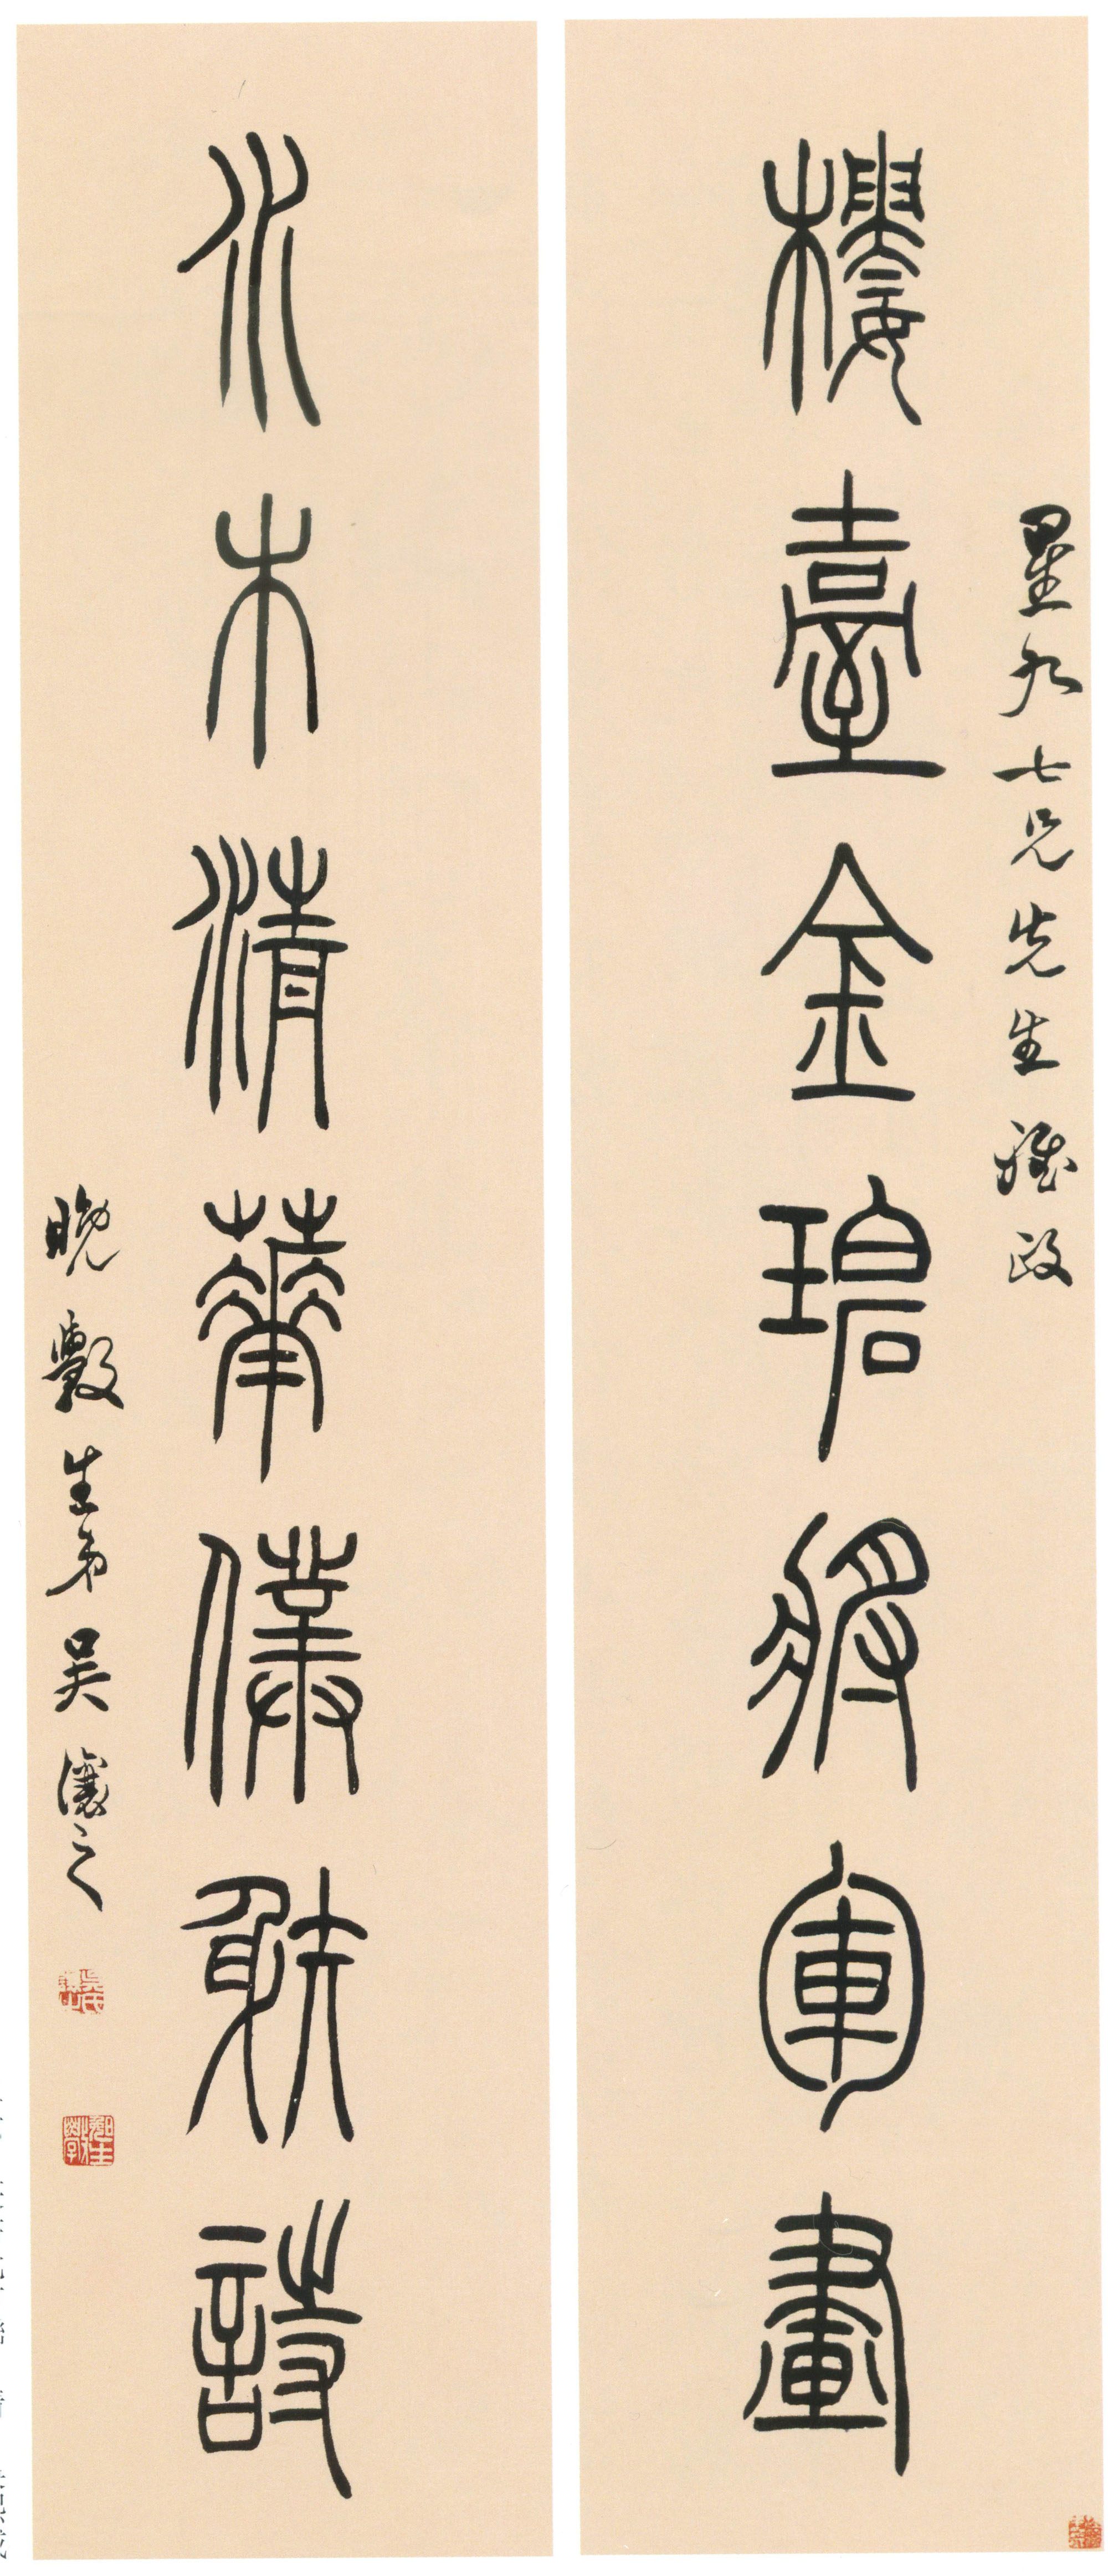 星九七兄先生雅政
樓臺金碧將軍畫
水木清華僕射詩
晚斅生弟吳讓之